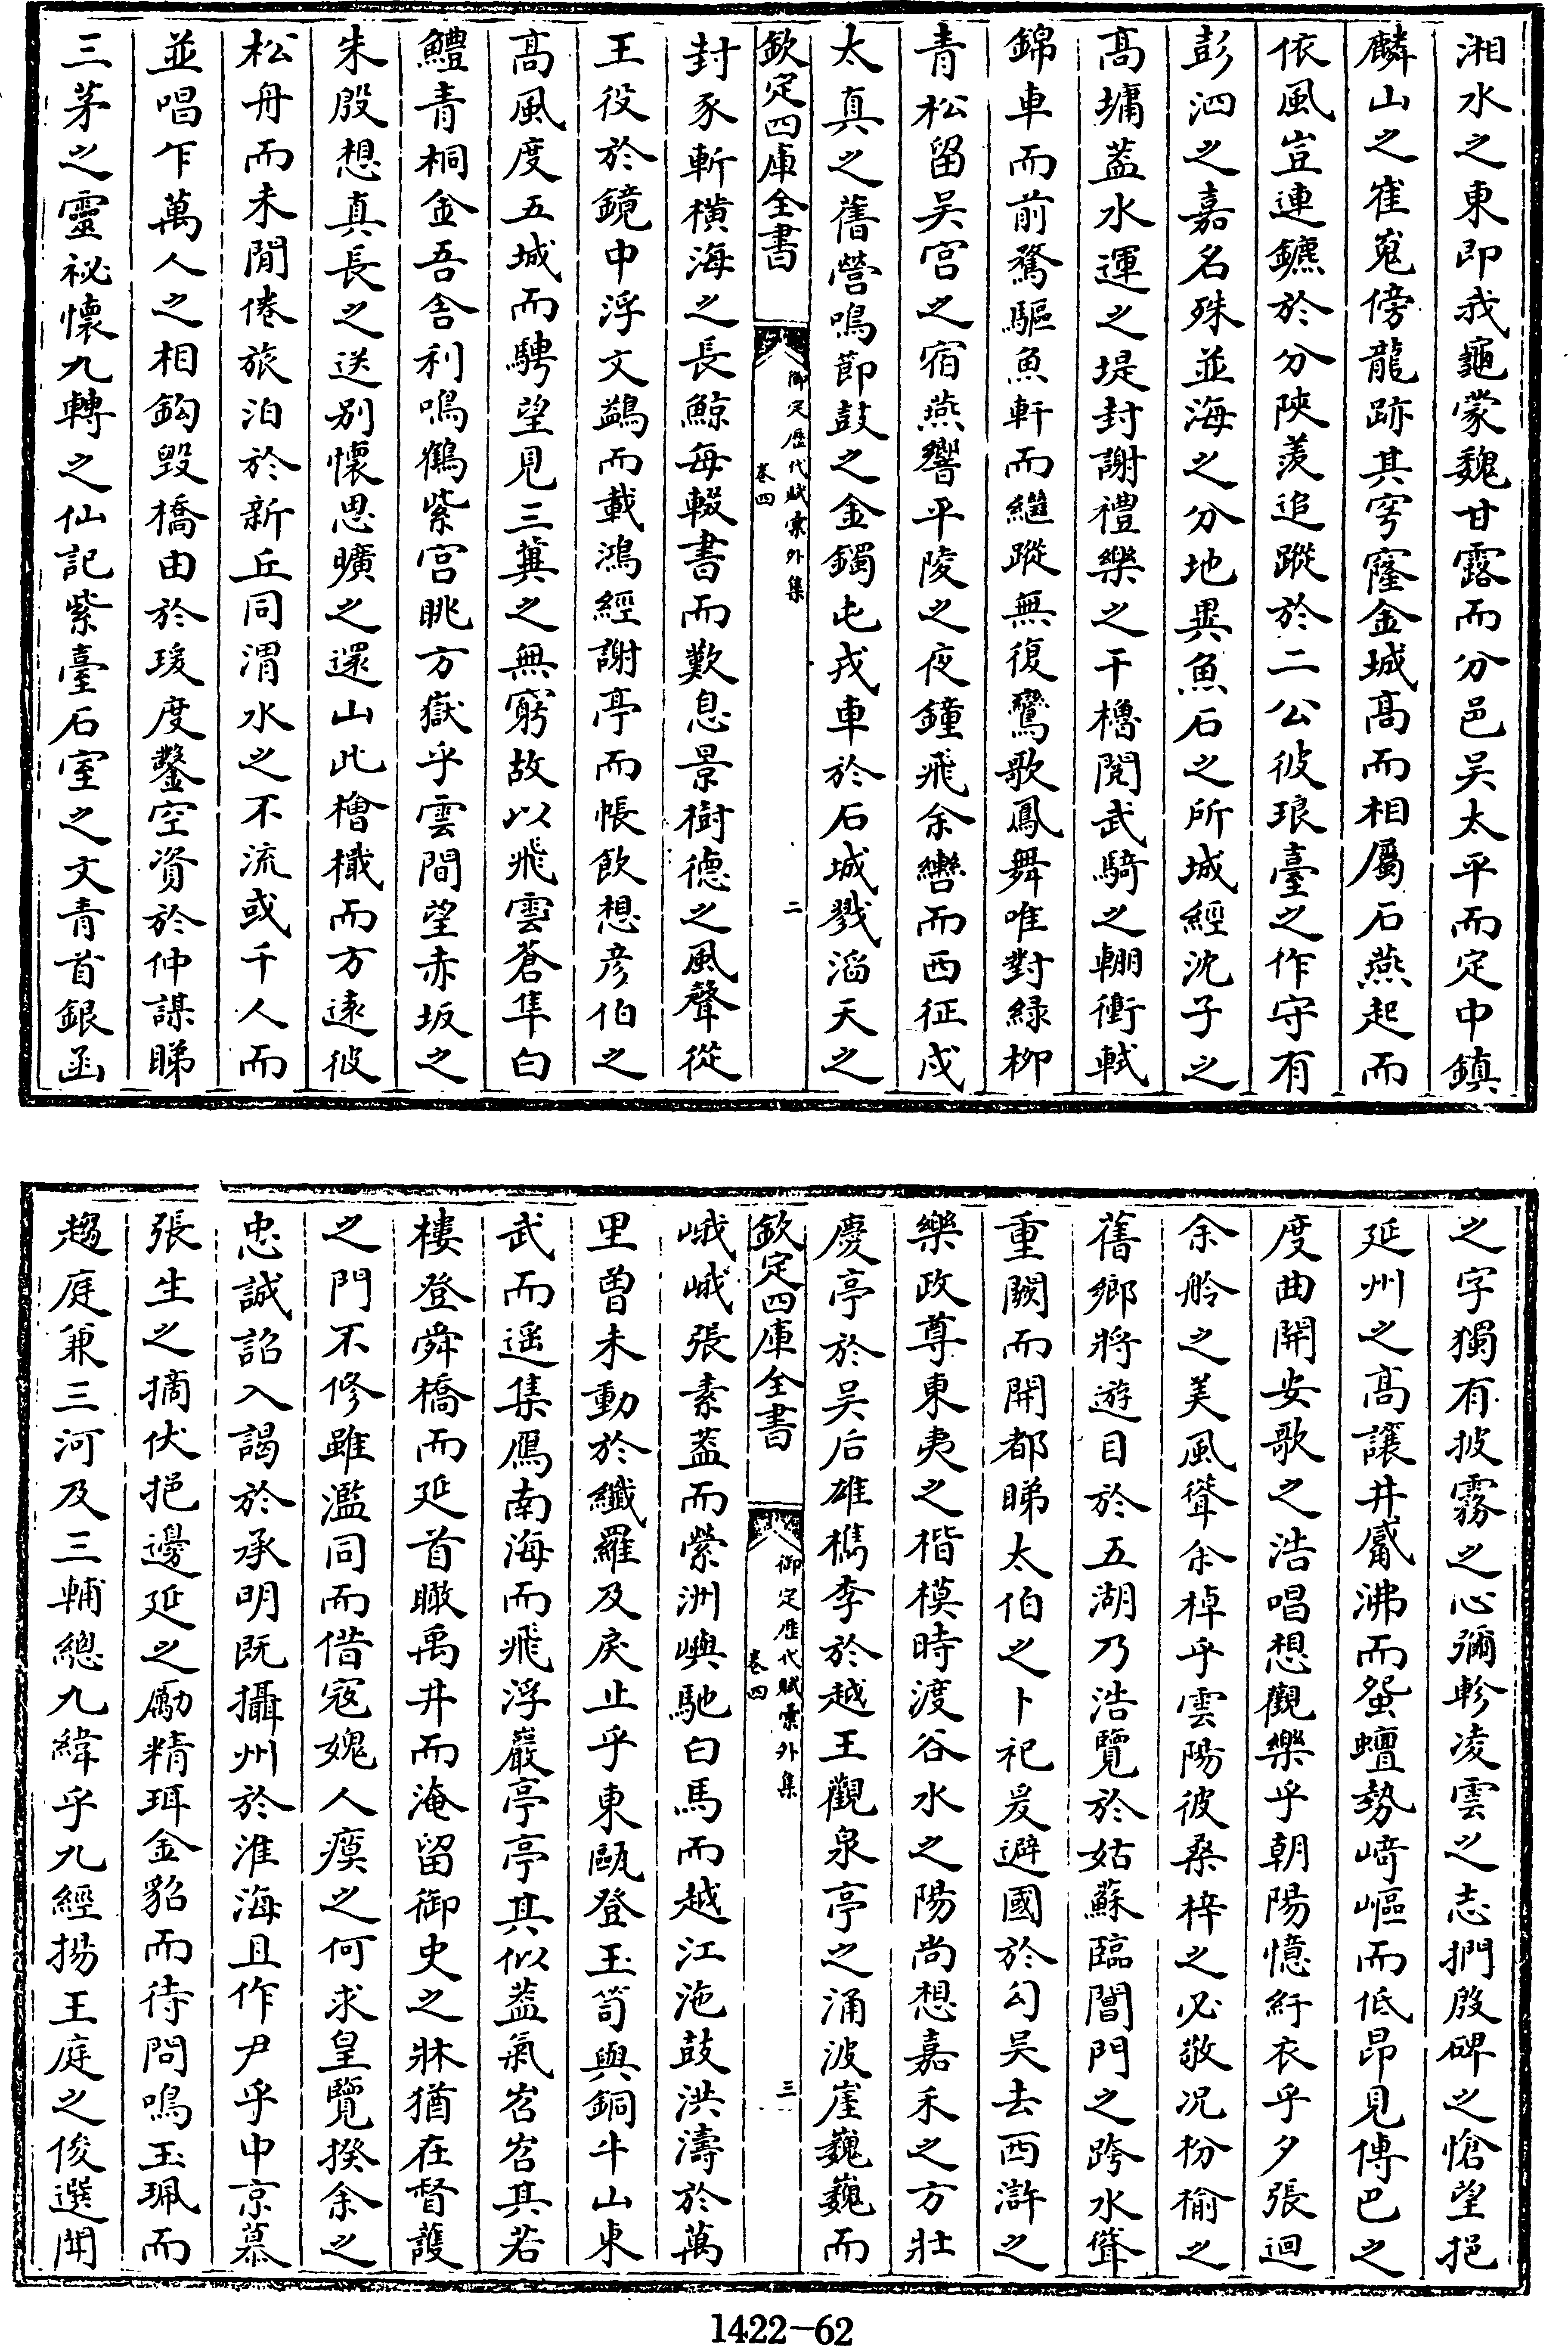 湘水之東即我龜蒙魏甘露而分邑吴太平而定中鎮
麟山之崔嵬傍龍跡其穹窿金城髙而相屬石燕起而
依風豈連鑣於分陜羨追蹤於二公彼琅臺之作守有
彭泗之嘉名殊並海之分地異魚石之所城經沈子之
髙墉葢水運之堤封謝禮樂之干櫓閲武騎之輣衝軾
錦車而前騖驅魚軒而繼蹤無復鸞歌鳳舞唯對緑栁
青松留吴宫之宿燕響平陵之夜鐘飛余轡而西征戍
太真之舊營鳴節鼓之金鐲屯戎車於石城戮滔天之
欽定四庫全書
御定歴代賦彚外集
卷四
二
封豕斬横海之長鯨每輟書而歎息景樹德之風聲從
王役於鏡中浮文鷁而載鴻經謝亭而帳飲想彦伯之
髙風度五城而騁望見三蓂之無窮故以飛雲蒼隼白
鱧青桐金吾舍利鳴鶴紫宫眺方嶽乎雲間望赤坂之
朱殷想真長之送别懷思曠之還山此檜檝而方逺彼
松舟而未閒倦旅泊於新丘同渭水之不流或千人而
並唱乍萬人之相鈎毁橋由於瑗度鑿空資於仲謀睇
三茅之靈祕懷九轉之仙記紫臺石室之文青首銀函
之字獨有披霧之心彌軫凌雲之志捫殷碑之愴望挹
延州之髙讓井觱沸而蜑蟺勢﨑嶇而低昂見傅巴之
度曲開安歌之浩唱想觀樂乎朝陽憶紆衣乎夕張迴
余舲之美風聳余棹乎雲陽彼桑梓之必敬况枌榆之
舊鄉將遊目於五湖乃浩覽於姑蘇臨閶門之跨水聳
重闕而開都睇太伯之卜祀爰避國於勾吴去西滸之
樂政尊東夷之楷模時渡谷水之陽尚想嘉禾之方壯
慶亭於吴后雄檇李於越王觀泉亭之涌波崖巍巍而
欽定四庫全書
御定歴代賦彚外集
卷四
三
峨峨張素葢而縈洲嶼馳白馬而越江沲鼓洪濤於萬
里曽未動於纎羅及戾止乎東甌登玉笥與銅牛山東
武而遥集鴈南海而飛浮巖亭亭其似葢氣岧岧其若
樓登舜橋而延首瞰禹井而淹留御史之牀猶在督護
之門不修雖濫同而借寇媿人瘼之何求皇覽揆余之
忠誠詔入謁於承明既攝州於淮海且作尹乎中京慕
張生之摘伏挹邊延之勵精珥金貂而待問鳴玉珮而
趨庭兼三河及三輔總九緯乎九經揚王庭之俊選聞
1422-62